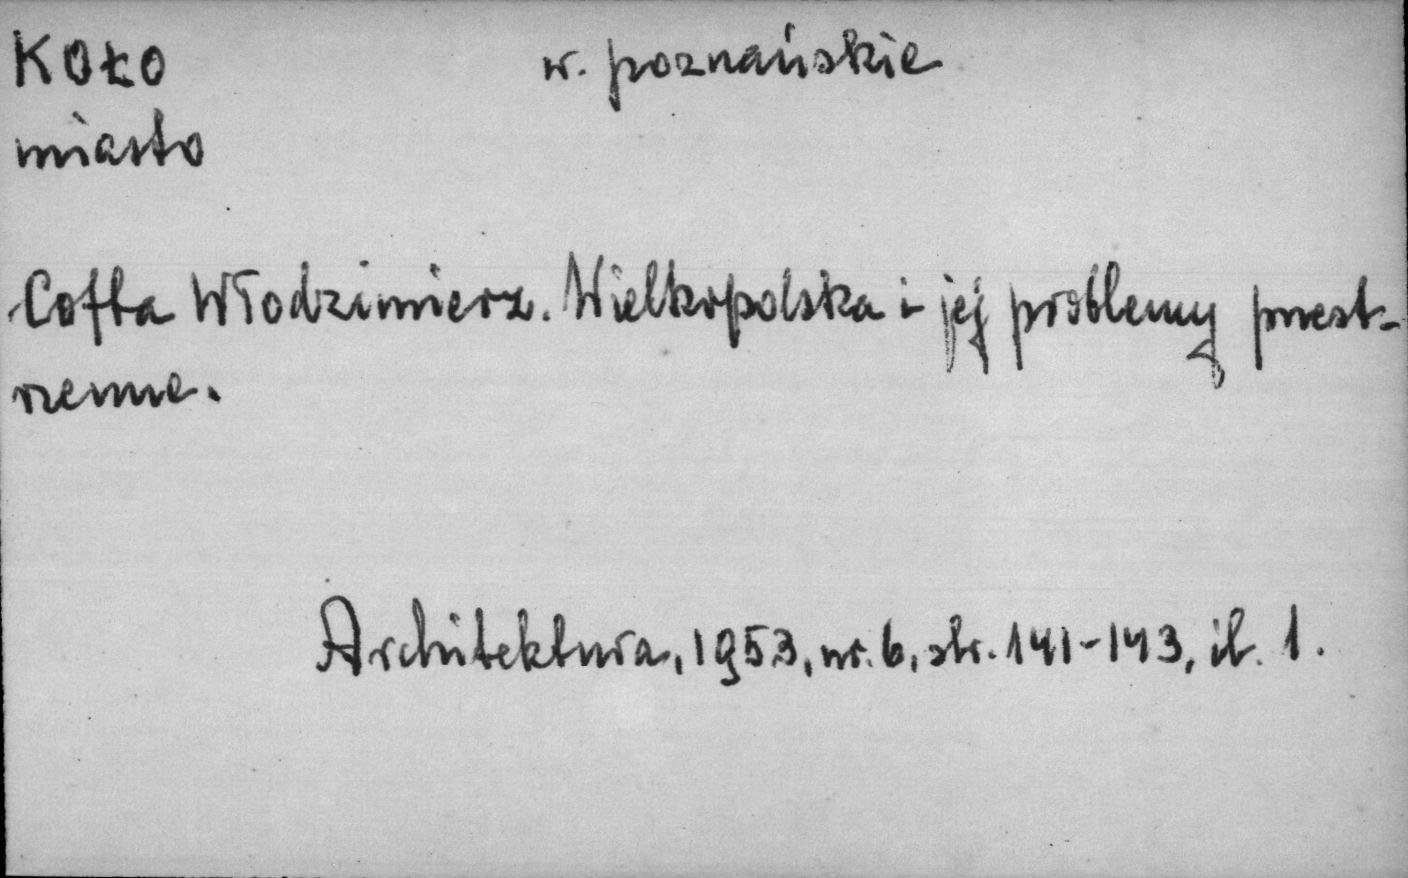 KOŁO w. poznańskie
miasto
Cofta Włodzimierz. Wielkopolska i jej problemy przest-
rzenne.
Architektura, 1953, nr. 6, str. 141-143, il. 1.